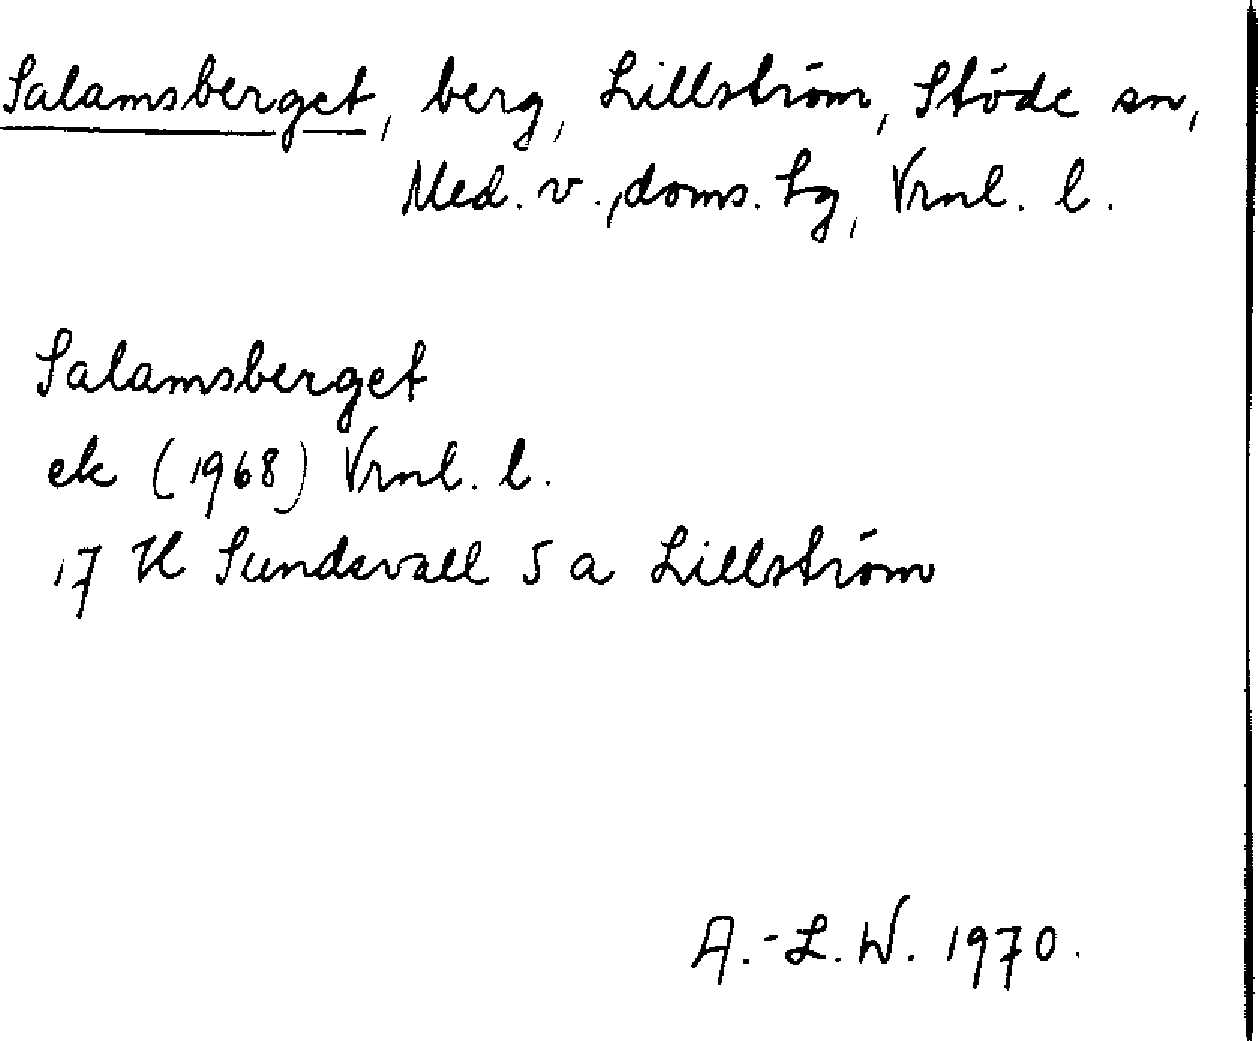 Salamsberget, berg, Lillström, Stöde sn,
Med. v., doms. tg, Vrnl. l.
Salamsberget
ek (1968) Vrnl. l.
17 H Sundsvall 5 a Lillström
A.-L.W. 1970.